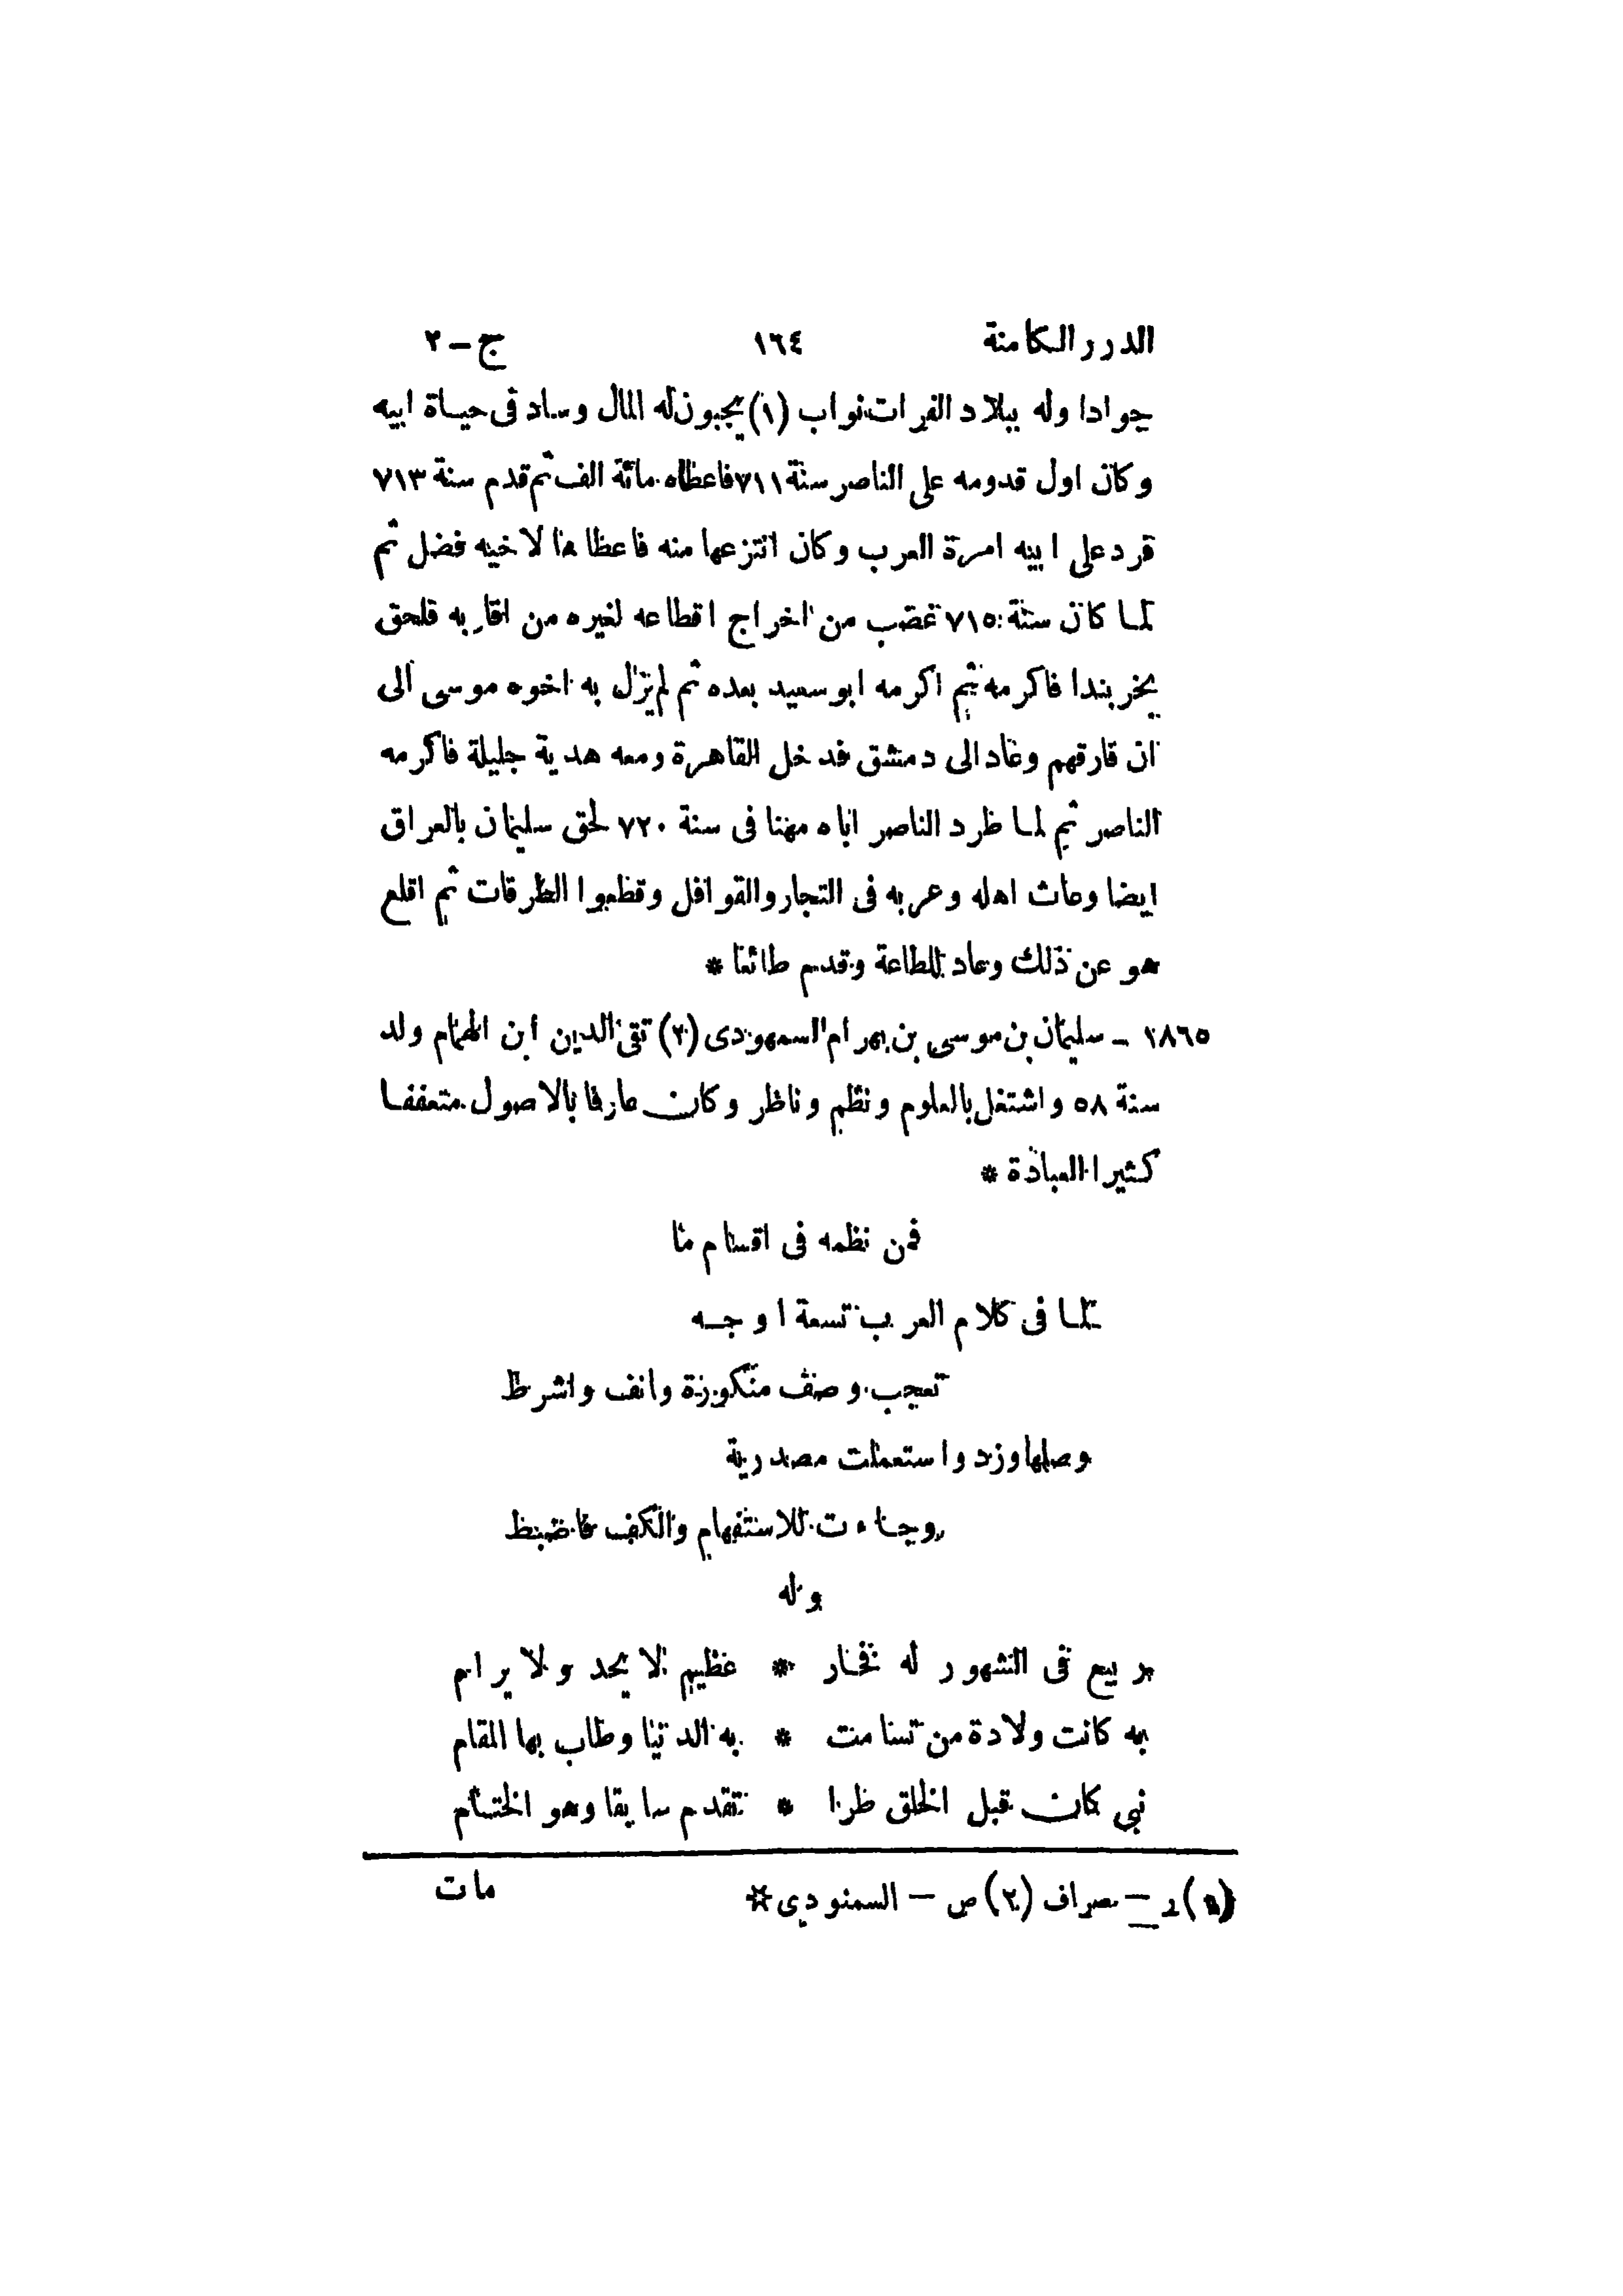 الدرر الكامنة ١٦٤ ج – ٢
جوادا وله ببلاد الفرات نواب (١) يجبون له المال وساد فى حياة ابيه
وكان اول قدومه على الناصر سنة ٧١١ فاعطاه مائة الف ثم قدم سنة ٧١٣
فرد على ابيه امرة العرب وكان انتزعها منه فاعطاها لاخيه فضل ثم
لما كان سنة ٧١٥ غضب من اخراج اقطاعه لغيره من اقاربه فلحق
بخربندا فاكرمه ثم اكرمه ابو سعيد بعده ثم لم يزل به اخوه موسى الى
ان فارقهم وعاد الى دمشق فدخل القاهرة ومعه هدية جليلة فاكرمه
الناصر ثم لما طرد الناصر اباه مهنا فى سنة ٧٢٠ لحق سليمان بالعراق
ايضا وعاث اهله وعربه فى التجار والقوافل وقطعوا الطرقات ثم اقلع
هو عن ذلك وعاد للطاعة وقدم طائعا *
١٨٦٥ – سليمان بن موسى بن بهرام السمهودى (٢) تقى الدين ابن الهمام ولد
سنة ٥٨ واشتغل بالعلوم ونظم وناظر وكان عارفا بالاصول متعففا
كثير العبادة *
فمن نظمه فى اقسام ما
لما فى كلام العرب تسعة اوجه
تعجب وصف منكورة وانف واشرط
وصلها وزد واستعملت مصدرية
وجاءت للاستفهام والكف فاضبط
وله
ربيع فى الشهور له فخار * عظيم لا يحد ولا يرام
به كانت ولادة من تسامت * به الدنيا وطاب بها المقام
نبى كان قبل الخلق طرا * تقدم سابقا وهو الختام
(١) ر – صراف (٢) ص – السمنودى * مات